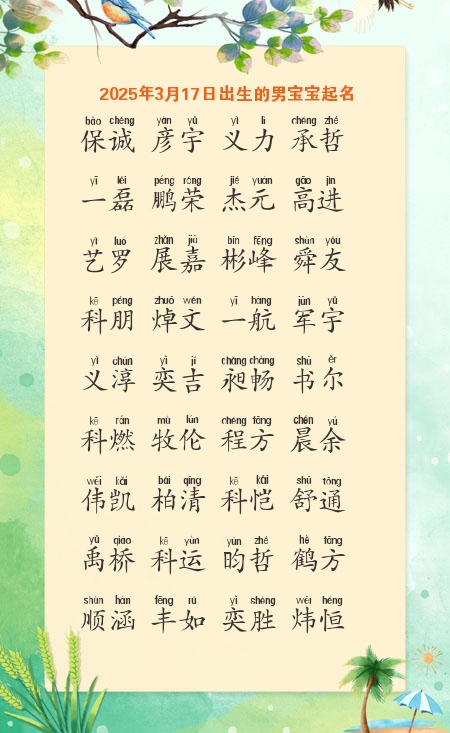 2025年3月17日出生的男宝宝起名
bǎo chéng yàn yǔ yì lì chéng zhé
保诚 彦宇 义力 承哲
yī lěi péng róng jié yuán gāo jìn
一磊 鹏荣 杰元 高进
yì luó zhǎn jiā bīn fēng shùn yǒu
艺罗 展嘉 彬峰 舜友
kē péng zhuō wén yī háng jūn yǔ
科朋 焯文 一航 军宇
yì chún yì jí chǎng chàng shū ěr
义淳 奕吉 昶畅 书尔
kē rán mù lún chéng fāng chén yú
科燃 牧伦 程方 晨余
wěi kǎi bǎi qīng kē kǎi shū tōng
伟凯 柏清 科恺 舒通
yǔ qiáo kē yùn yún zhé hè fāng
禹桥 科运 昀哲 鹤方
shùn hán fēng rú yì shèng wěi héng
顺涵 丰如 奕胜 炜恒